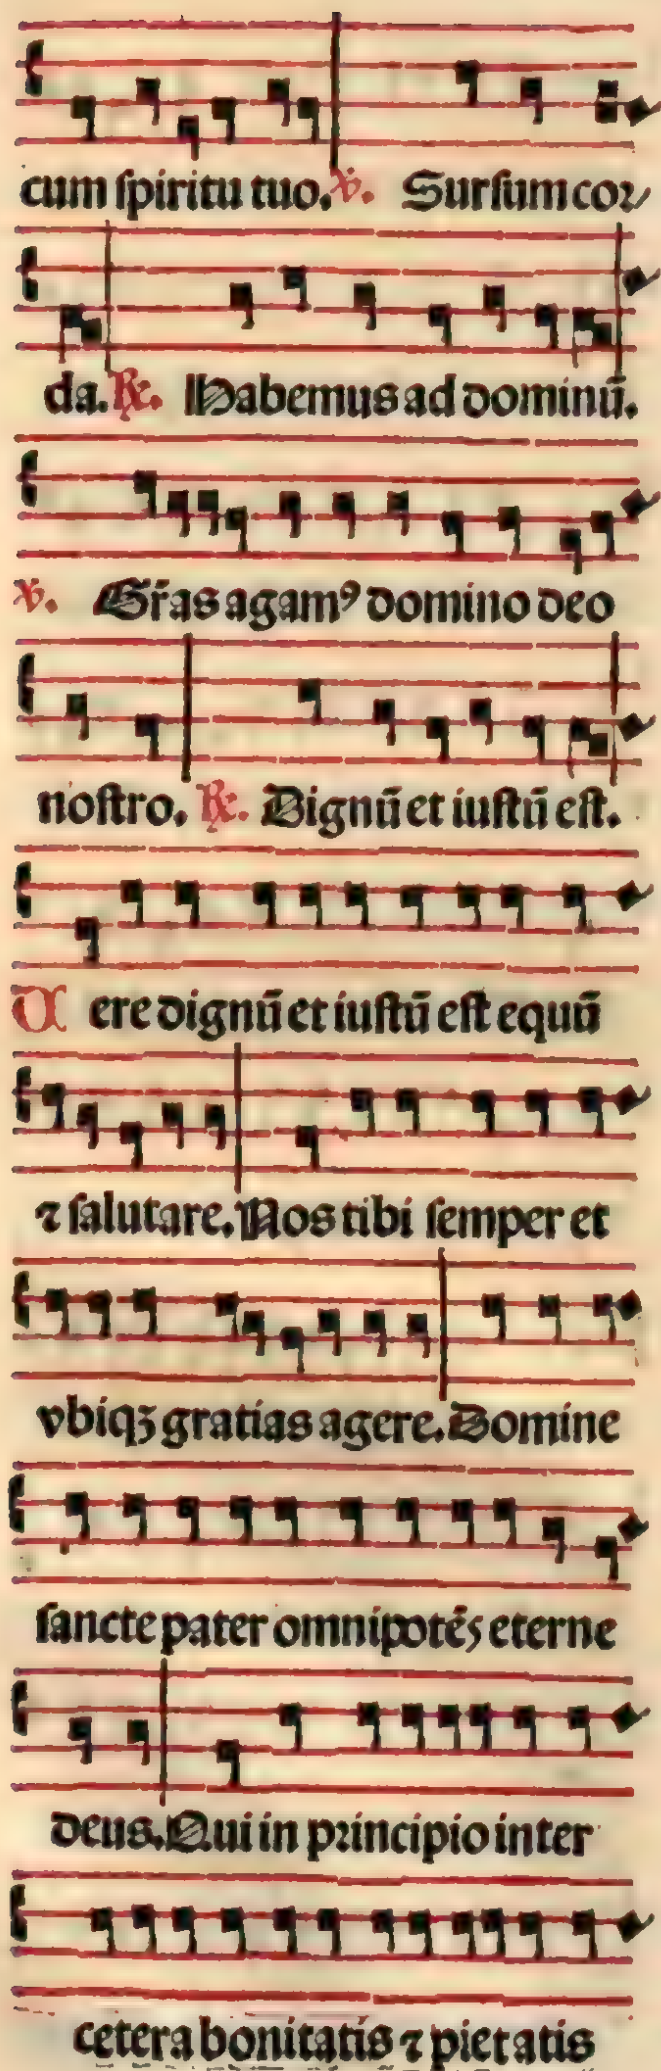 cum ſpiritu tuo. ℣. Surſum coꝛ
da. ℟. Habemus ad dominū.
℣. Gr̄as agamꝰ domino deo
noſtro. ℟. Dignū et iuſtū eſt.
Vere dignū et iuſtū eſt equū
⁊ ſalutare. Nos tibi ſemper et
vbiqꝫ gratias agere. Domine
ſancte pater omnipotēs eterne
deus. Qui in pꝛincipio inter
cetera bonitatis ⁊ pietatis